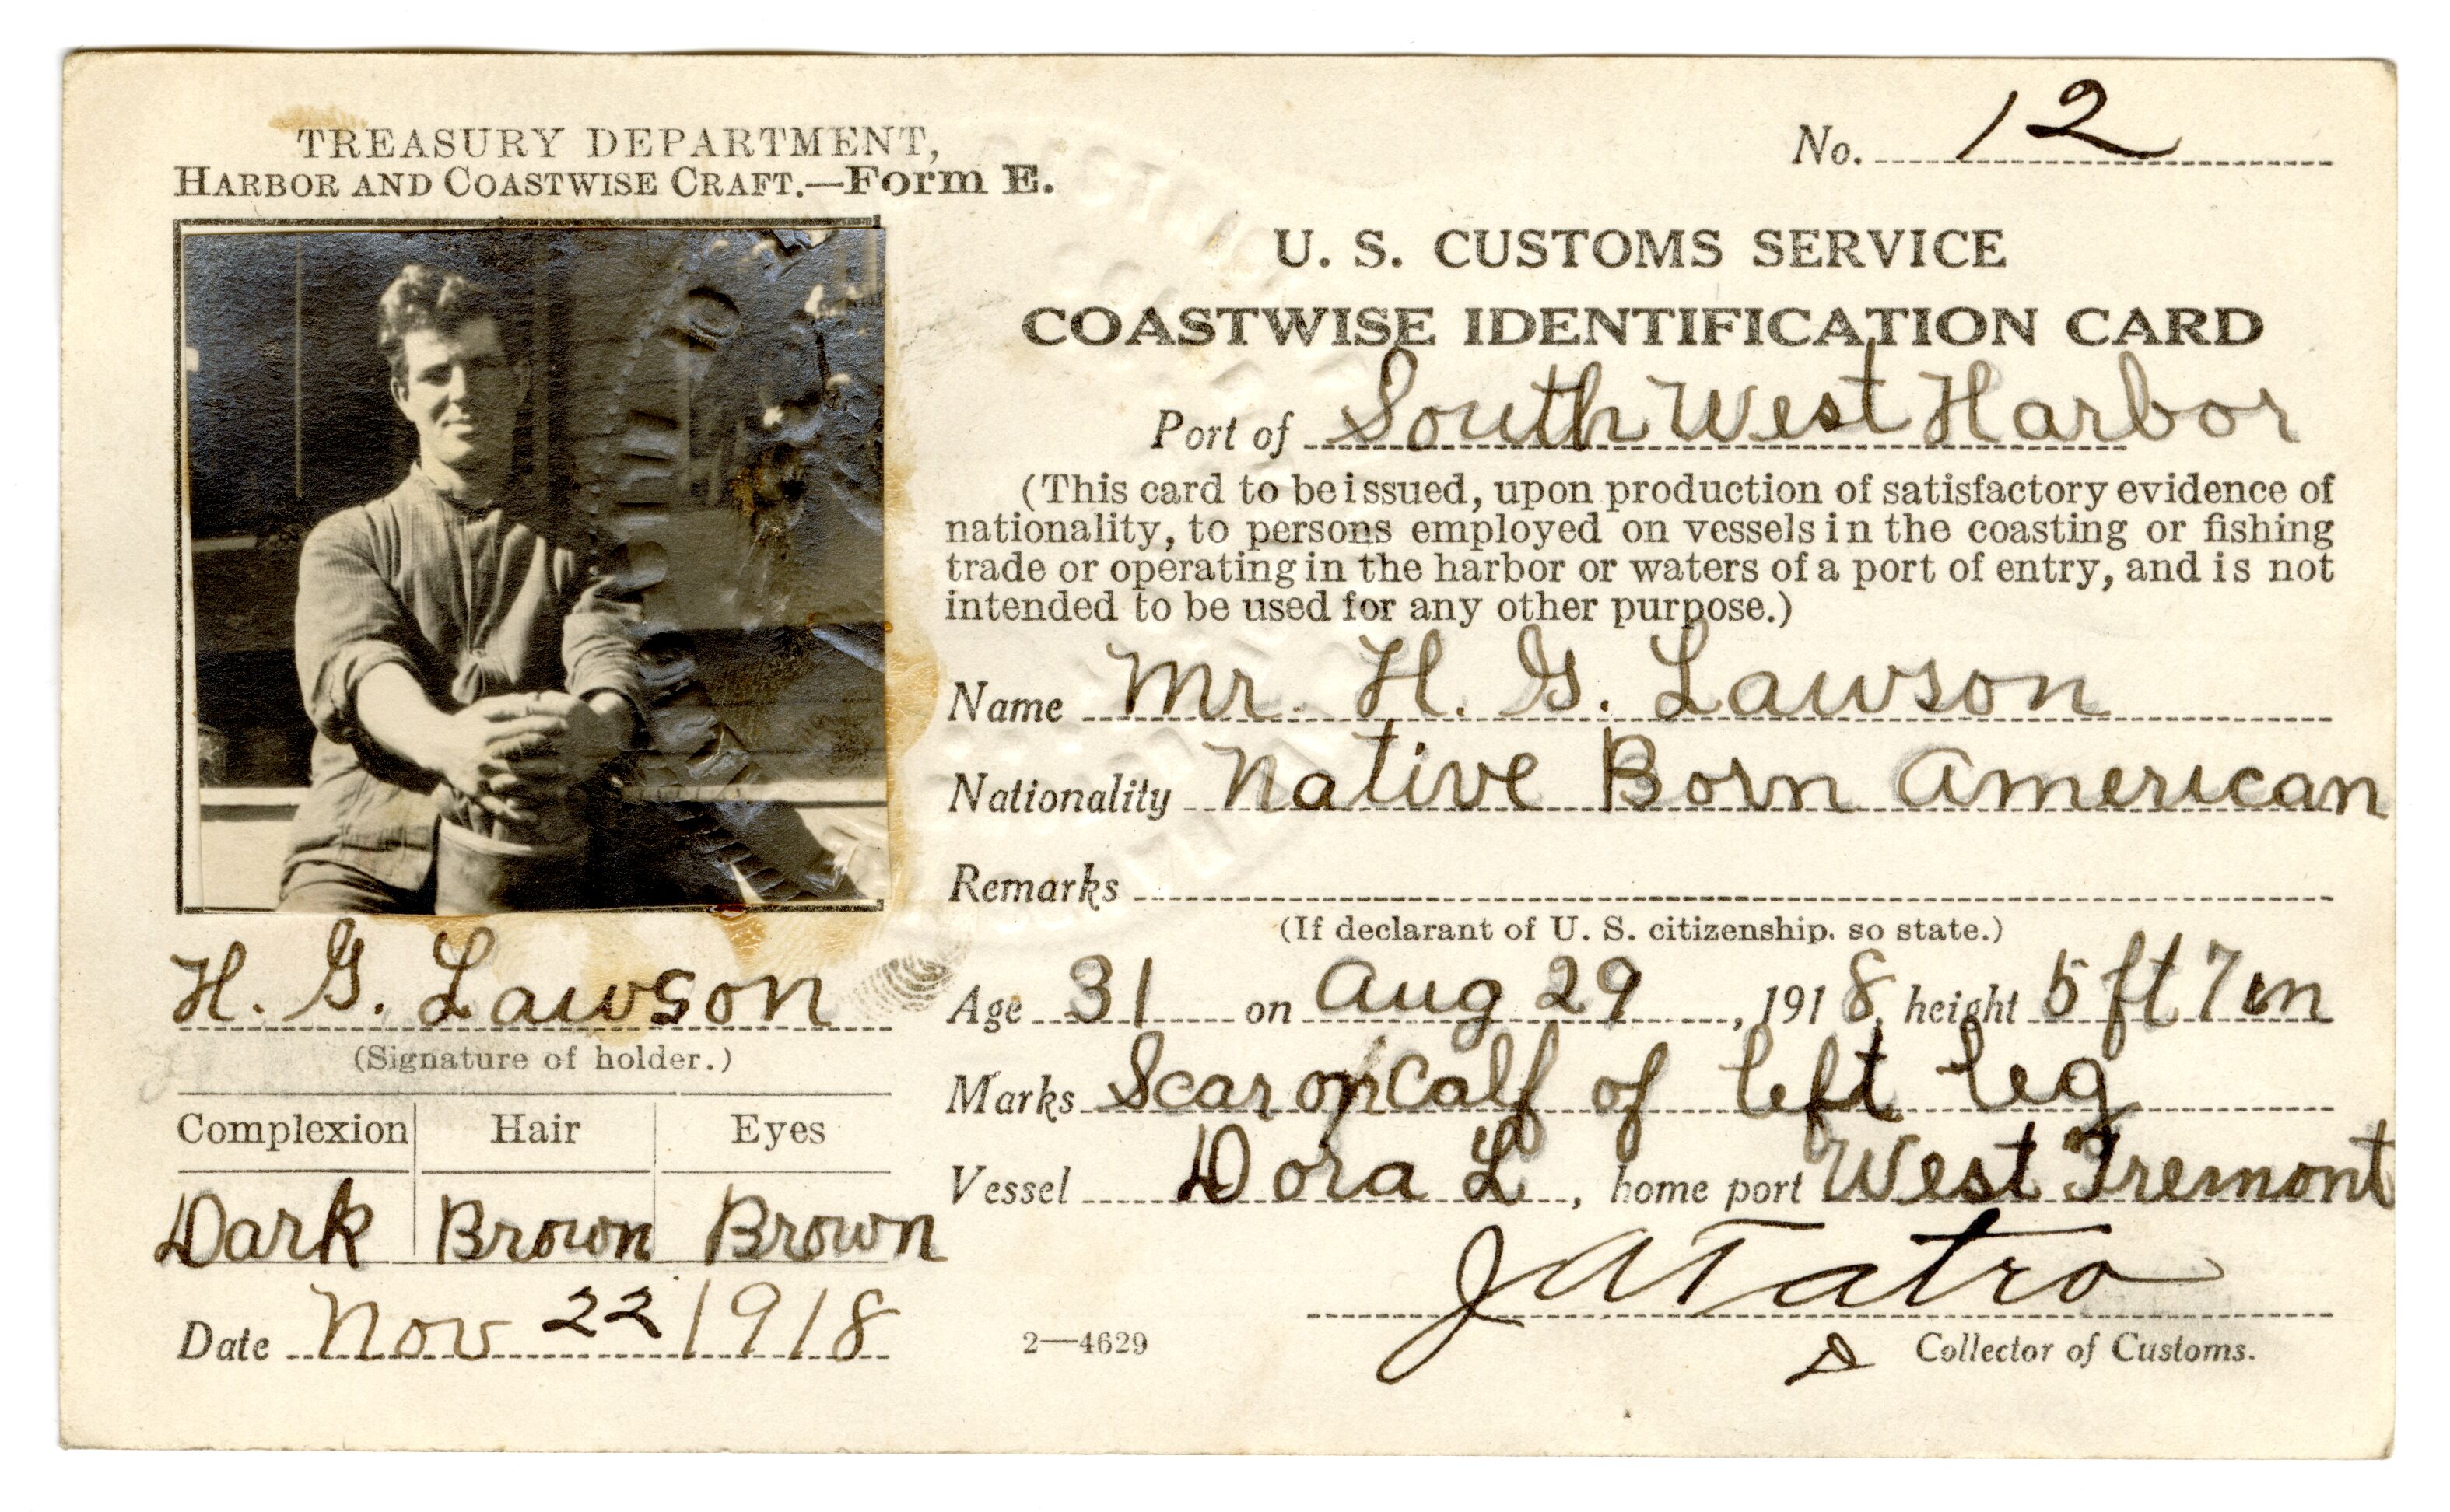 TREASURY DEPARTMENT,
HARBOR AND COASTWISE CRAFT.—Form E.
No. 12
U. S. CUSTOMS SERVICE
COASTWISE IDENTIFICATION CARD
Port of South West Harbor
(This card to be issued, upon production of satisfactory evidence of
nationality, to persons employed on vessels in the coasting or fishing
trade or operating in the harbor or waters of a port of entry, and is not
intended to be used for any other purpose.)
Name Mr. H. G. Lawson
Nationality Native Born American
Remarks
(If declarant of U. S. citizenship, so state.)
Age 31 on Aug 29, 1918, height 5 ft 7 in
Marks Scar on Calf of left leg
Vessel Dora L, home port West Tremont
J A Tatro
Collector of Customs.
2—4629
H. G. Lawson
(Signature of holder.)
Complexion Hair Eyes
Dark Brown Brown
Date Nov 22 1918